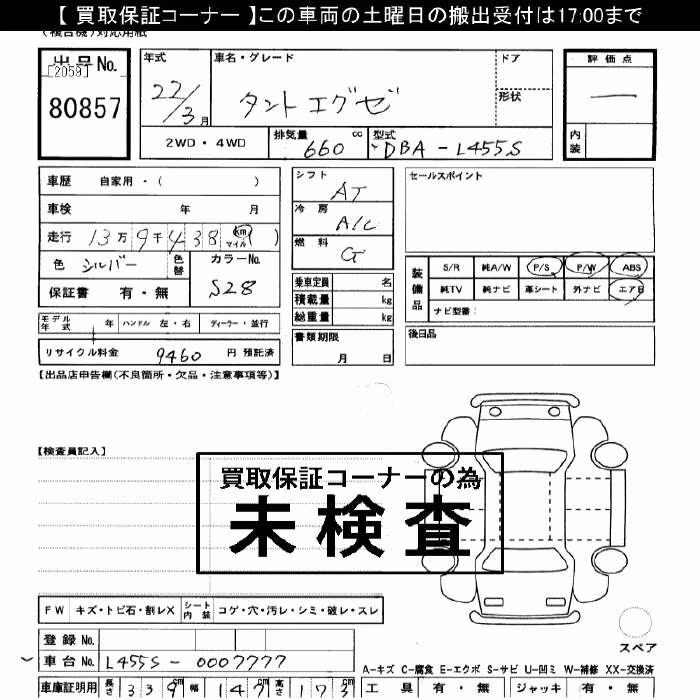 【 買取保証コーナー 】この車両の土曜日の搬出受付は17:00まで
(複合機)対応用紙
出品No.
[2059]
80857
年式
22/3月
車名・グレード
タントエグゼ
ドア
形状
評価点
—
内装
2WD・4WD
排気量 660 cc
型式 DBA-L455S
車歴 自家用・( )
車検 年 月
走行 13万9千438 km マイル ( )
色 シルバー
色替
カラーNo. S28
保証書 有・無
シフト AT
冷房 A/C
燃料 G
乗車定員 名
積載量 kg
総重量 kg
書類期限
月 日
セールスポイント
装備品
S/R 純A/W P/S P/W ABS
純TV 純ナビ 革シート 外ナビ エアB
ナビ型番:
後日品
モデル年式 年 ハンドル 左・右 ディーラー・並行
リサイクル料金 9460 円 預託済
【出品店申告欄(不良箇所・欠品・注意事項等)】
【検査員記入】
買取保証コーナーの為
未検査
FW キズ・トビ石・割レX シート内装 コゲ・穴・汚レ・シミ・破レ・スレ
登録No.
車台No. L455S-0007777
スペア
A-キズ C-腐食 E-エクボ S-サビ U-凹ミ W-補修 XX-交換済
車庫証明用 長さ 339cm 幅 147cm 高さ 173cm
工具 有・無 ジャッキ 有・無